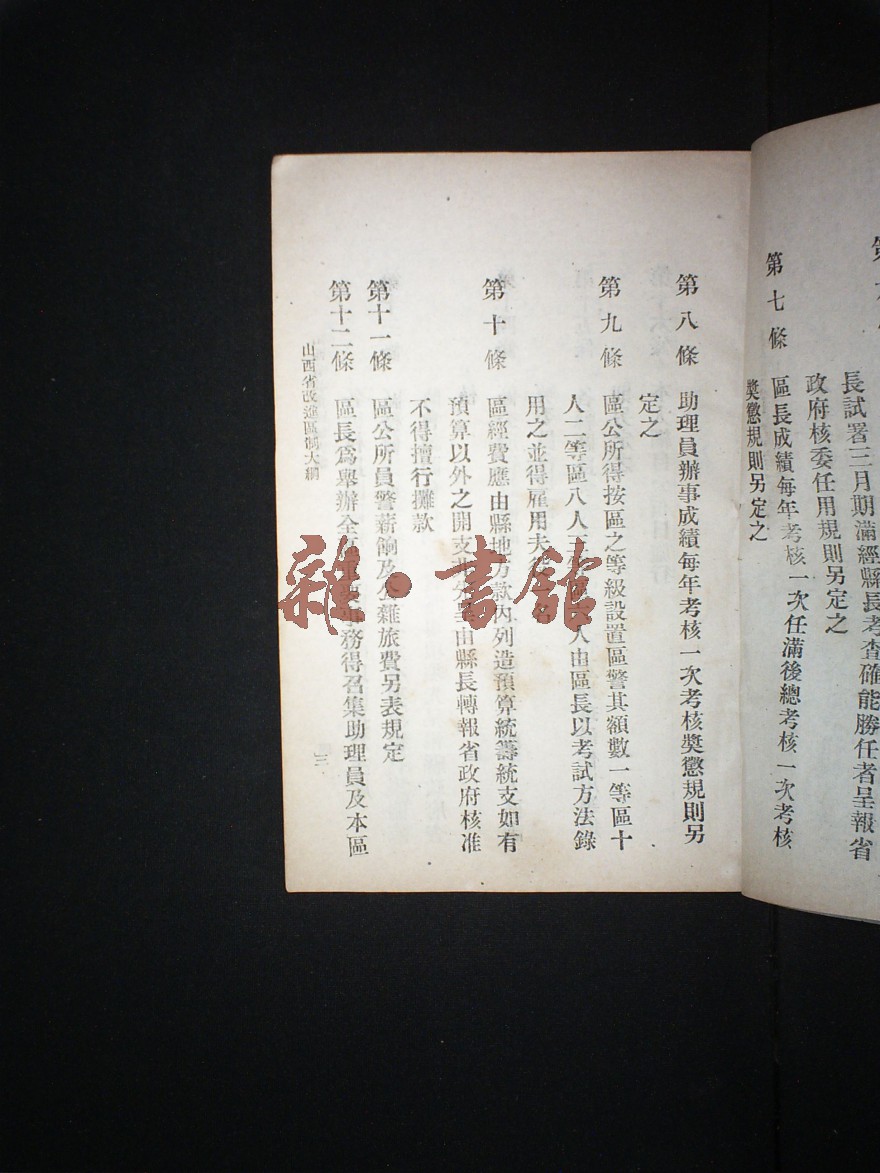 長試署三月期滿經縣長考查確能勝任者呈報省
政府核委任用規則另定之
第七條 區長成績每年考核一次任滿後總考核一次考核
獎懲規則另定之
第八條 助理員辦事成績每年考核一次考核獎懲規則另
定之
第九條 區公所得按區之等級設置區警其額數一等區十
人二等區八人三 人由區長以考試方法錄
用之並得雇用夫
第十條 區經費應由縣地方款內列造預算統籌統支如有
預算以外之開支非 呈由縣長轉報省政府核准
不得擅行攤款
第十一條 區公所員警薪餉及公雜旅費另表規定
第十二條 區長為舉辦全 務得召集助理員及本區
山西省改進區制大綱
三
雜·書館